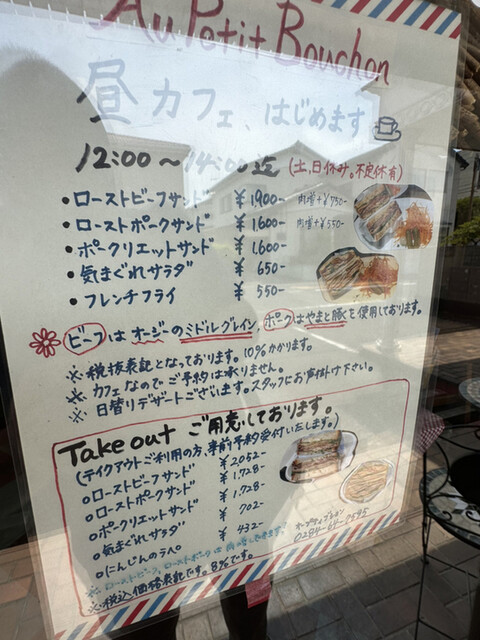 Au Petit Bouchon
昼カフェ、はじめます
12:00〜14:00迄 (土,日休み。不定休有)
・ローストビーフサンド ¥1,900- 肉増+¥750-
・ローストポークサンド ¥1,600- 肉増+¥550-
・ポークリエットサンド ¥1,600-
・気まぐれサラダ ¥650-
・フレンチフライ ¥550-
ビーフはオージーのミドルグレイン、ポークはやまと豚を使用しております。
※税抜表記となっております。10%かかります。
※カフェなのでご予約は承りません。
※日替りデザートございます。スタッフにお声掛け下さい。
Take out ご用意しております。
(テイクアウトご利用の方、事前予約受付いたします。)
oローストビーフサンド ¥2052-
oローストポークサンド ¥1,728-
oポークリエットサンド ¥1,728-
o気まぐれサラダ ¥702-
oにんじんのラペ ¥432-
※ローストビーフ、ローストポークは肉増し
※税込価格表記です。8%です。
オープティブション
0284-64-7595